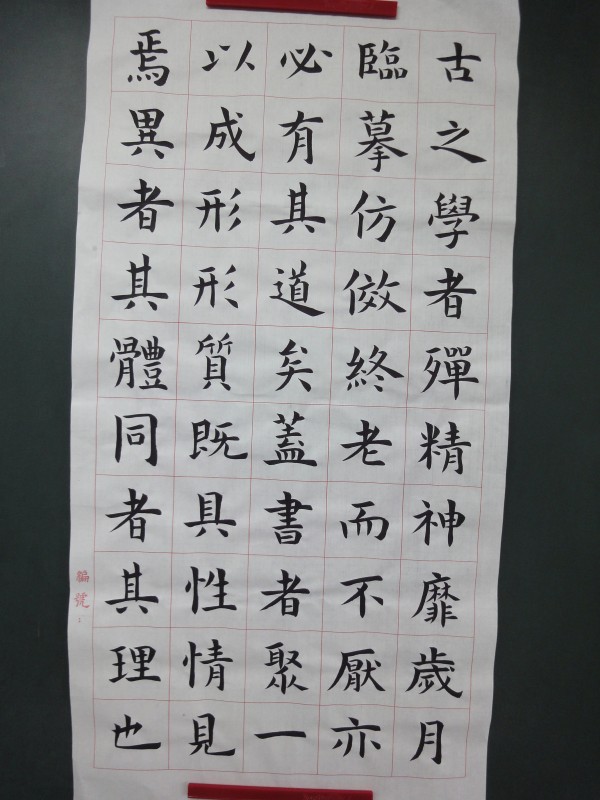 古之學者殫精神靡歲月
臨摹仿傚終老而不厭亦
必有其道矣蓋書者聚一
以成形形質既具性情見
焉異者其體同者其理也
編號: